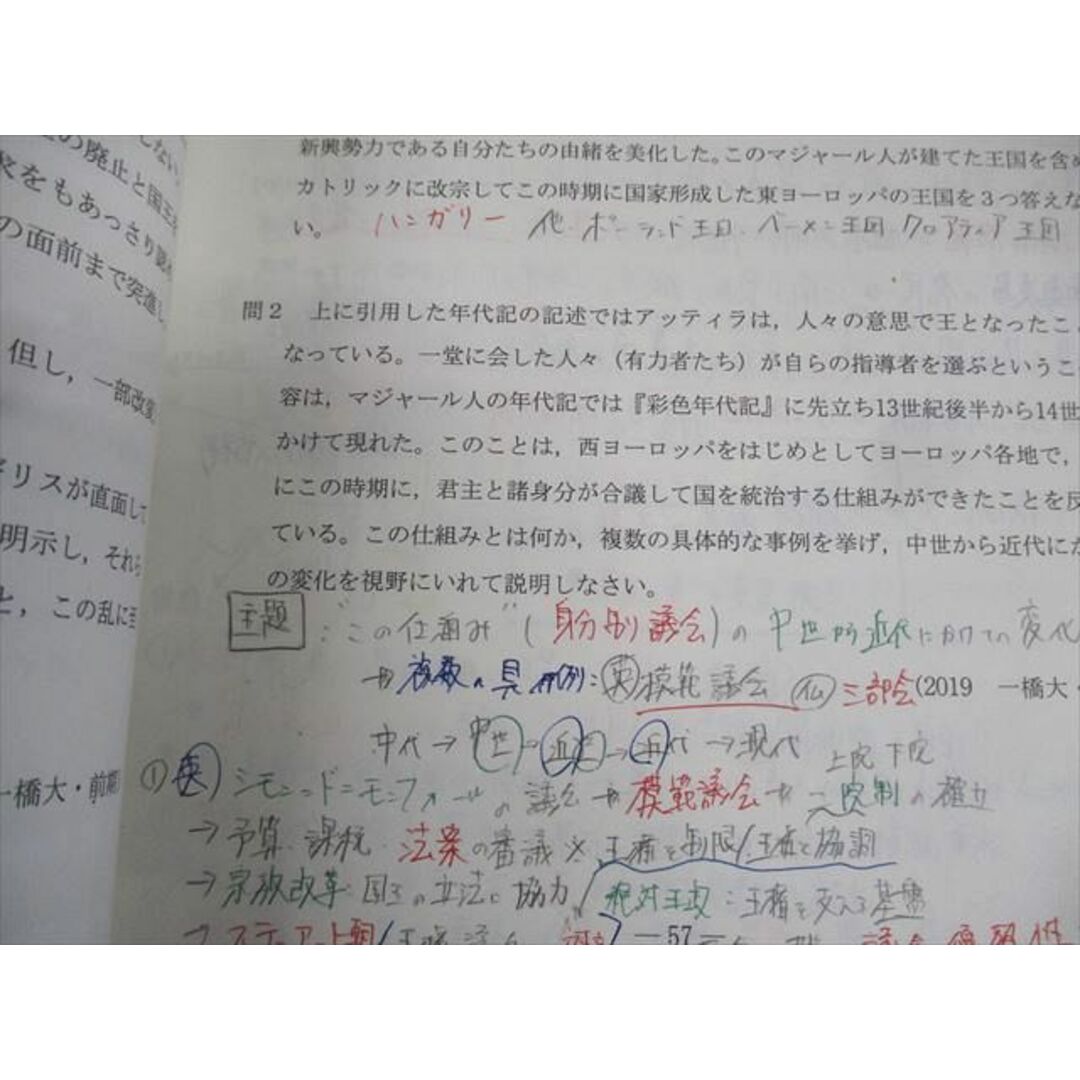 しない。
の廃止と国王
をもあっさり認
の面前まで突進し
但し，一部改変
リスが直面して
明示し，それら
と，この乱に至
一橋大・前期
新興勢力である自分たちの由緒を美化した。このマジャール人が建てた王国を含め
カトリックに改宗してこの時期に国家形成した東ヨーロッパの王国を３つ答えな
い。 ハンガリー 他・ポーランド王国、ベーメン王国 クロアティア王国
問２ 上に引用した年代記の記述ではアッティラは，人々の意思で王となったこ
なっている。一堂に会した人々（有力者たち）が自らの指導者を選ぶというこ
容は，マジャール人の年代記では『彩色年代記』に先立ち13世紀後半から14世
かけて現れた。このことは，西ヨーロッパをはじめとしてヨーロッパ各地で，
にこの時期に，君主と諸身分が合議して国を統治する仕組みができたことを反
ている。この仕組みとは何か，複数の具体的な事例を挙げ，中世から近代にか
の変化を視野にいれて説明しなさい。
主題：“この仕組み”（身分別議会）の中世から近代にかけての変化
→複数の具体例：英 模範議会 仏 三部会 (2019 一橋大・
→近代→現代 上院 下院
① 英 シモン=ド=モンフォールの議会→模範議会→二院制の確立
→予算・課税・法案の審議 ※王権を制限/王権と協調
→宗教改革：国王の立法に協力 絶対王政：王権を支える基盤
→ステュアート朝
―57―